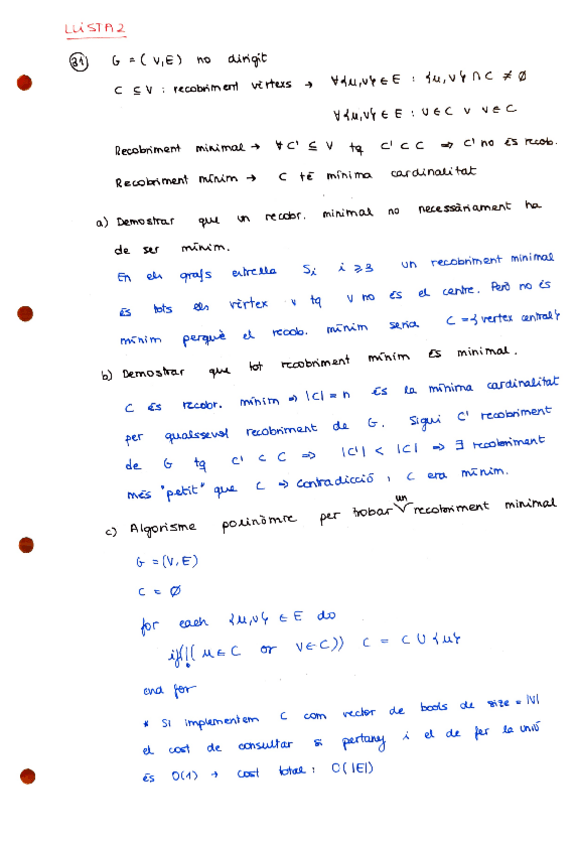 LLISTA 2
31 G = (V,E) no dirigit
C ⊆ V : recobriment vèrtexs → ∀{u,v} ∈ E : {u,v} ∩ C ≠ ∅
∀{u,v} ∈ E : u ∈ C ∨ v ∈ C
Recobriment minimal → ∀ C' ⊆ V tq C' ⊂ C ⇒ C' no és recob.
Recobriment mínim → C té mínima cardinalitat
a) Demostrar que un recobr. minimal no necessàriament ha
de ser mínim.
En els grafs estrella Si i ≥ 3 un recobriment minimal
és tots els vèrtex v tq v no és el centre. Però no és
mínim perquè el recob. mínim seria C = {vertex central}
b) Demostrar que tot recobriment mínim és minimal.
C és recobr. mínim ⇒ |C| = n és la mínima cardinalitat
per qualssevol recobriment de G. Sigui C' recobriment
de G tq C' ⊂ C ⇒ |C'| < |C| ⇒ ∃ recobriment
més "petit" que C ⇒ contradicció, C era mínim.
c) Algorisme polinòmic per trobar un recobriment minimal
G = (V,E)
C = ∅
for each {u,v} ∈ E do
if(!(u ∈ C or v ∈ C)) C = C ∪ {u}
end for
* Si implementem C com vector de bools de size = |V|
el cost de consultar si pertany i el de fer la unió
és O(1) → cost total: O(|E|)